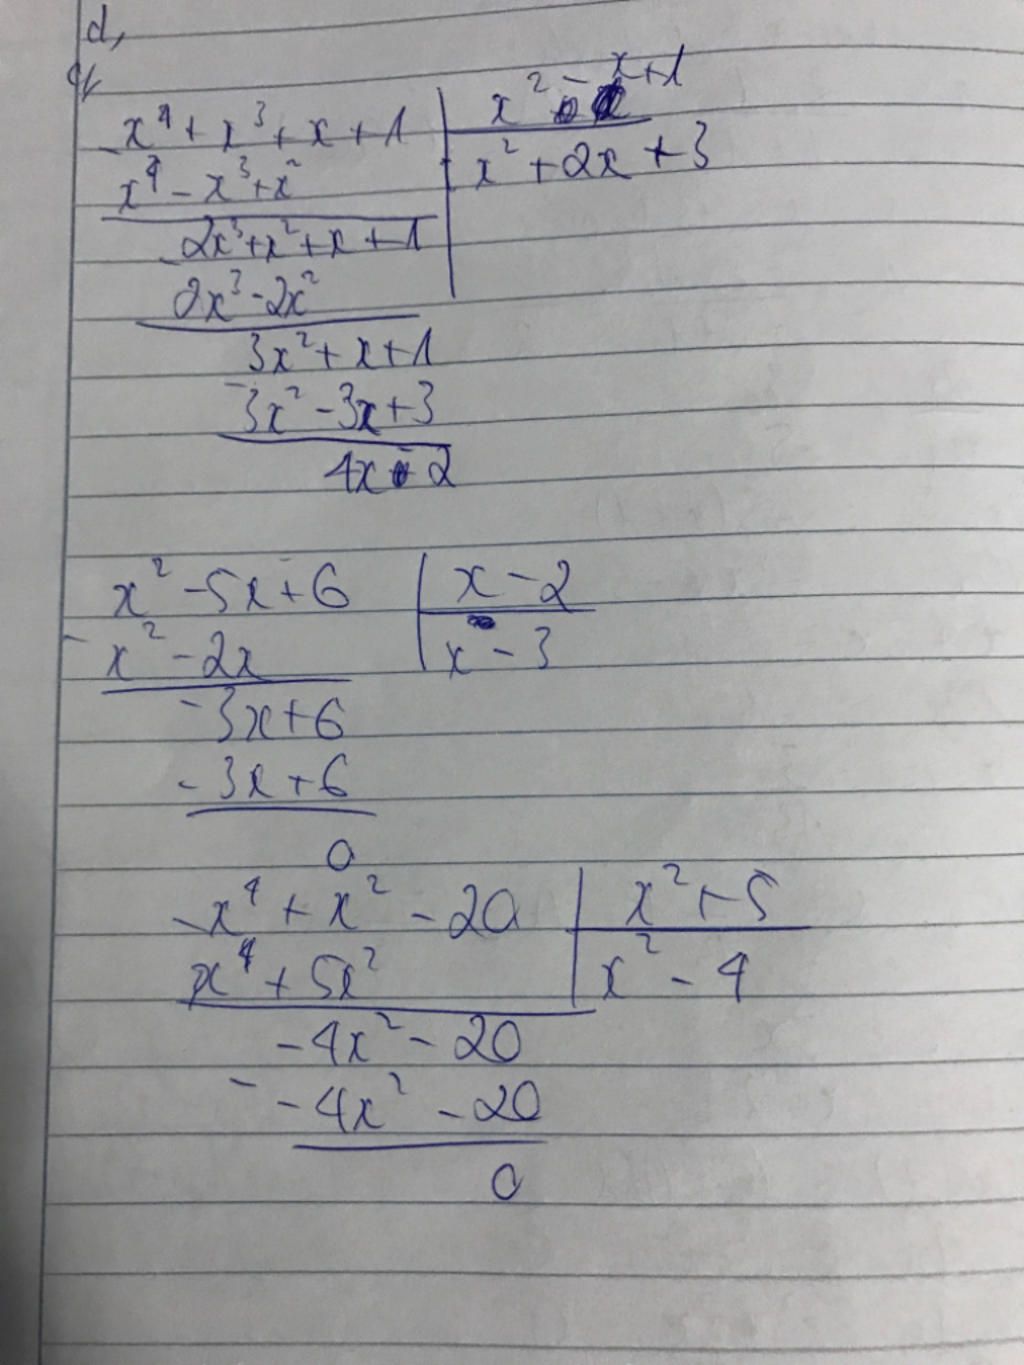 d,
x⁴ + x³ + x + 1 | x² - x + 1
x⁴ - x³ + x² | x² + 2x + 3
2x³ + x² + x + 1
2x³ - 2x²
3x² + x + 1
- 3x² - 3x + 3
4x - 2
x² - 5x + 6 | x - 2
- x² - 2x | x - 3
- 3x + 6
- 3x + 6
0
- x⁴ + x² - 20 | x² + 5
x⁴ + 5x² | x² - 4
- 4x² - 20
- - 4x² - 20
0